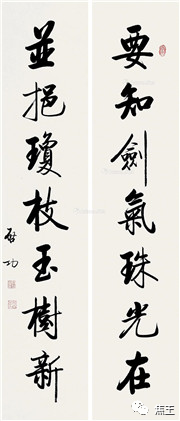 要知劍氣珠光在
並挹瓊枝玉樹新
啟功
馮王